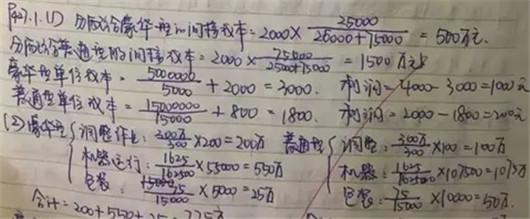 P47.1.(1) 分配给豪华型的间接成本=2000×25000/(25000+75000)=500万元.
分配给普通型的间接成本=2000×75000/(25000+75000)=1500万元
豪华型单位成本=5000000/5000+2000=3000. 利润=4000-3000=1000元
普通型单位成本=15000000/15000+800=1800. 利润=2000-1800=200元
(2) 豪华型 调整作业:300万/300×200=200万 普通型 调整:300万/300×100=100万
机器运行:1625/162500×55000=550万 机器:1625/162500×107500=1075万
包装:/15000×5000=25万 包装:75/15000×10000=50万
合计=200+550+25=775万